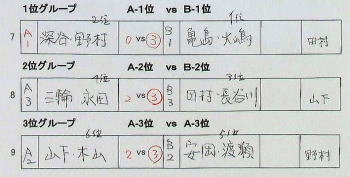 1位グループ 2位 A-1位 vs B-1位 1位
7 A1 深谷・野村 0 vs ③ B1 亀島・大嶋 田村
2位グループ 4位 A-2位 vs B-2位 3位
8 A3 三輪 永田 2 vs ③ B3 田村・長谷川 山下
3位グループ 6位 A-3位 vs A-3位 5位
9 A2 山下・木山 2 vs ③ B2 安岡・渡瀬 野村